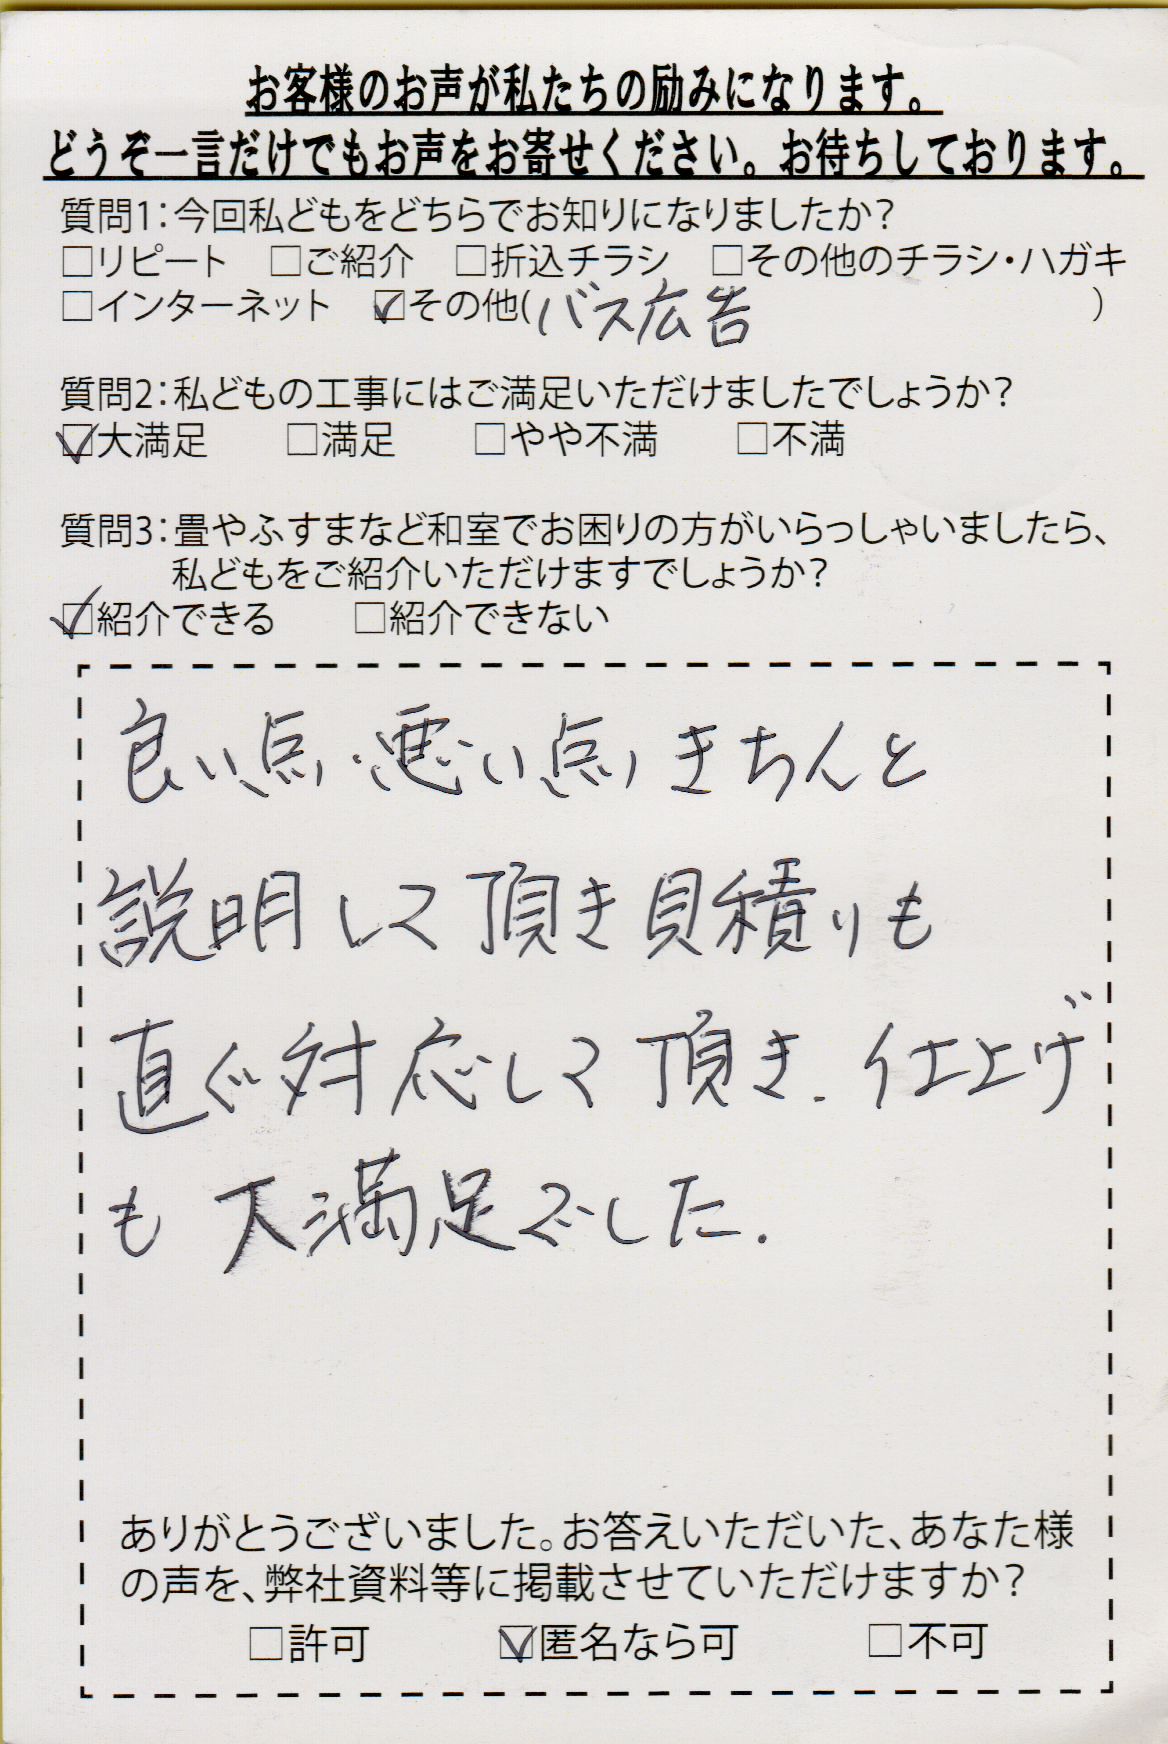 お客様のお声が私たちの励みになります。
どうぞ一言だけでもお声をお寄せください。お待ちしております。
質問1:今回私どもをどちらでお知りになりましたか?
□リピート □ご紹介 □折込チラシ □その他のチラシ・ハガキ
□インターネット ☑その他(バス広告)
質問2:私どもの工事にはご満足いただけましたでしょうか?
☑大満足 □満足 □やや不満 □不満
質問3:畳やふすまなど和室でお困りの方がいらっしゃいましたら、
私どもをご紹介いただけますでしょうか?
☑紹介できる □紹介できない
良い点・悪い点きちんと
説明して頂き見積りも
直ぐ対応して頂き、仕上げ
も大満足でした.
ありがとうございました。お答えいただいた、あなた様
の声を、弊社資料等に掲載させていただけますか?
□許可 ☑匿名なら可 □不可